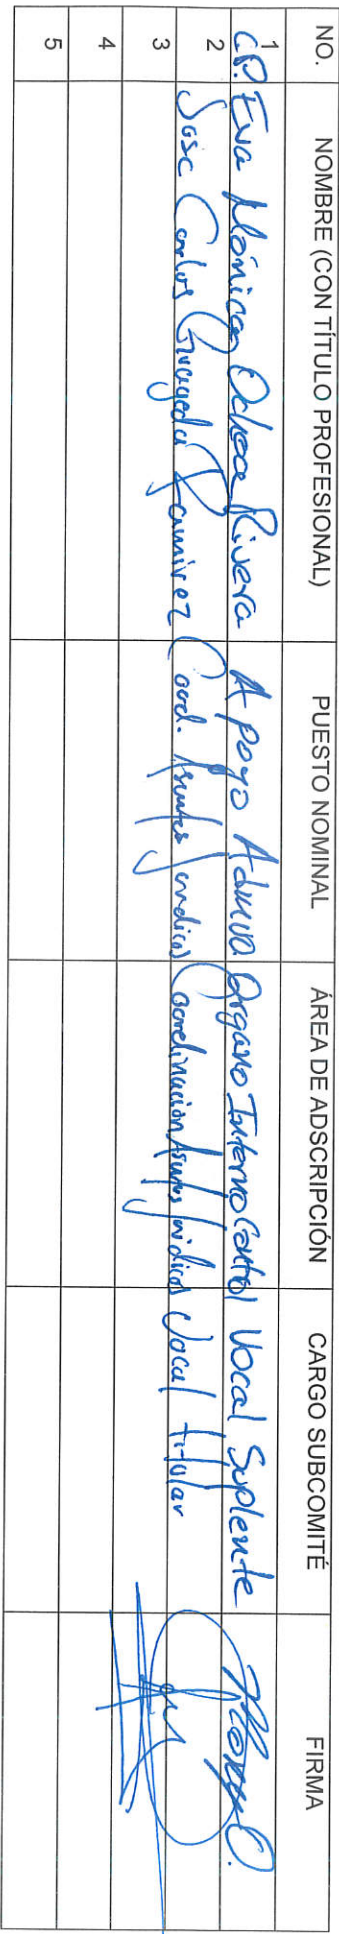 NO. NOMBRE (CON TÍTULO PROFESIONAL) PUESTO NOMINAL ÁREA DE ADSCRIPCIÓN CARGO SUBCOMITÉ FIRMA
1 CP. Eva Mónica Ochoa Rivera Apoyo Admvo Órgano Interno Control Vocal Suplente
2 Jose Carlos Ramirez Coord. Asuntos Juridicos Coordinación Asuntos Juridicos Vocal titular
3
4
5